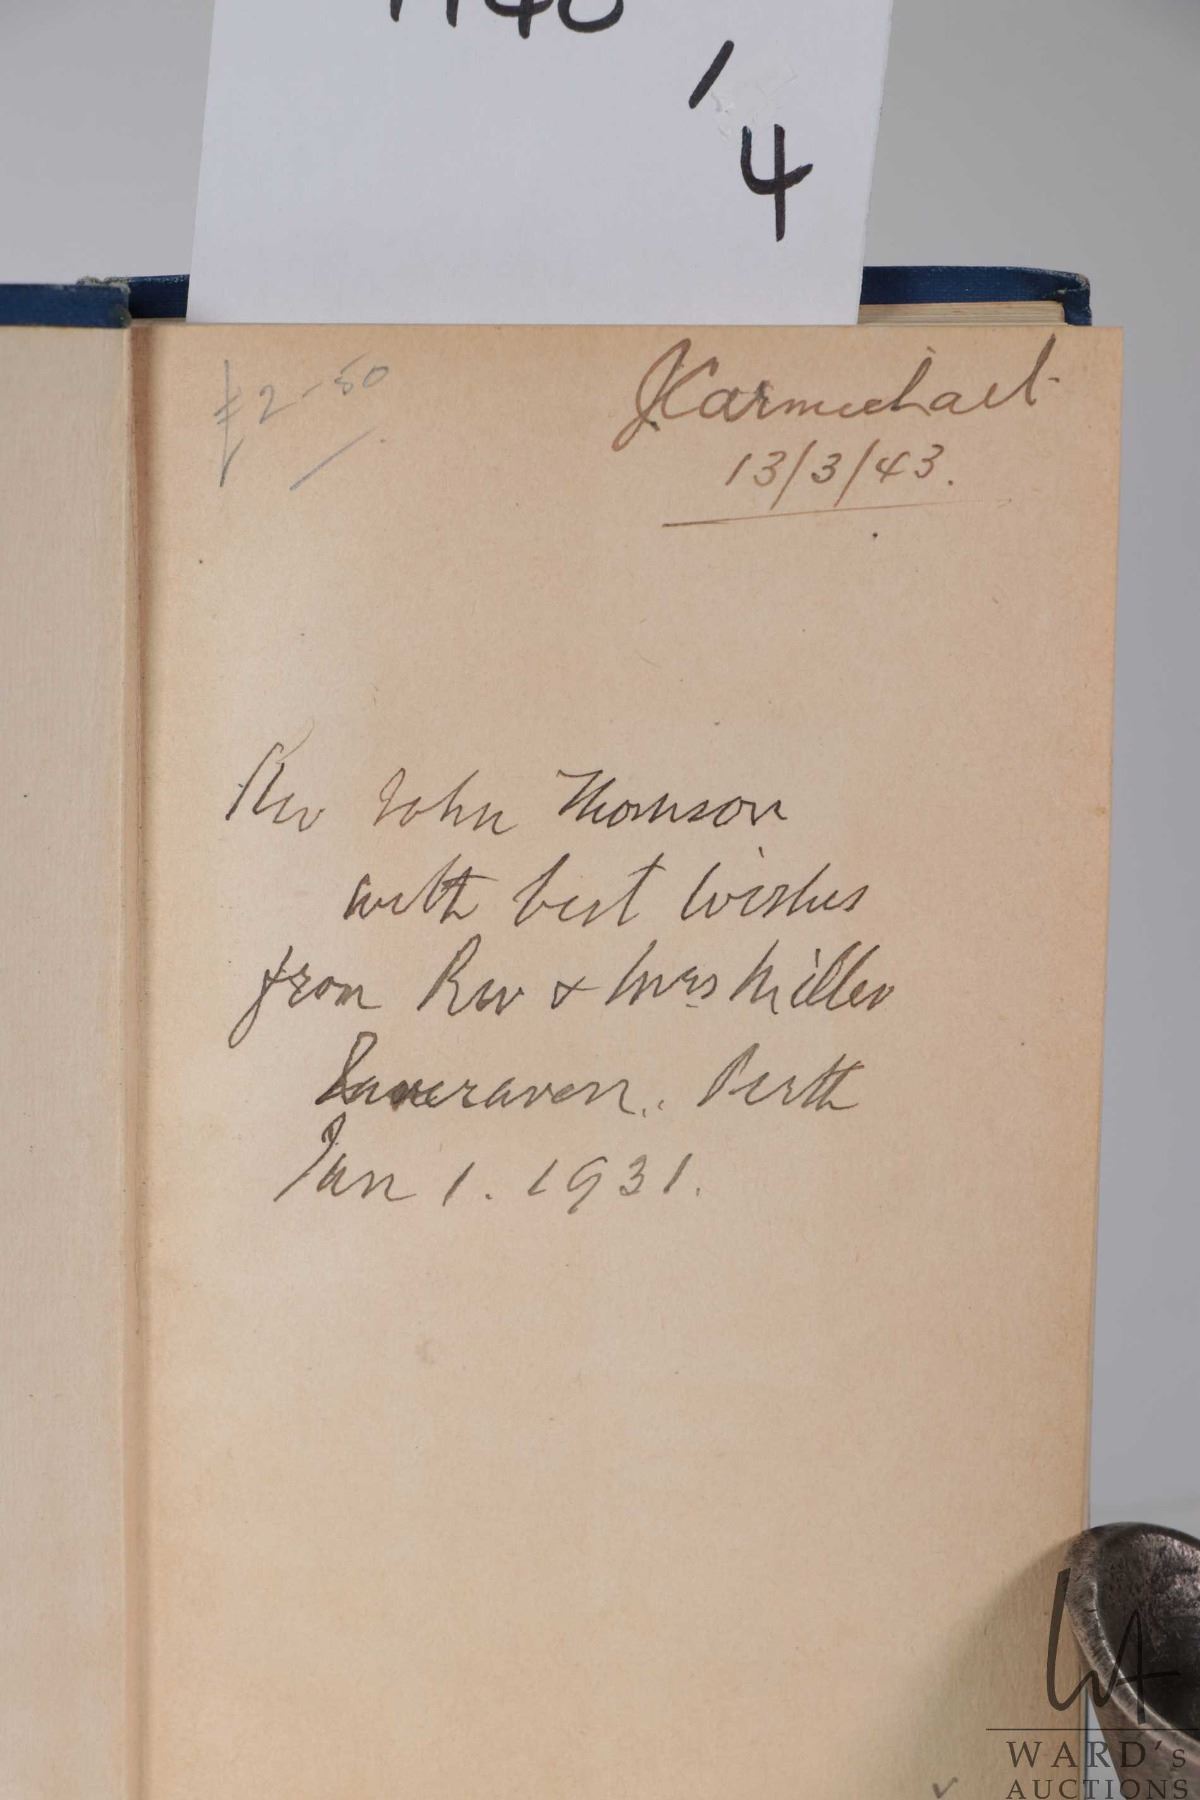 4
£2-50
JCarmichael
13/3/43.
Rev John Thomson
with best wishes
from Rev & Mrs Miller
Perth
Jan 1. 1931.
WARD'S
AUCTIONS